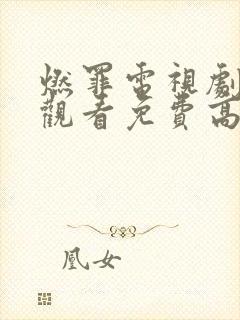 燃罪電視劇
觀看免費高
凰女